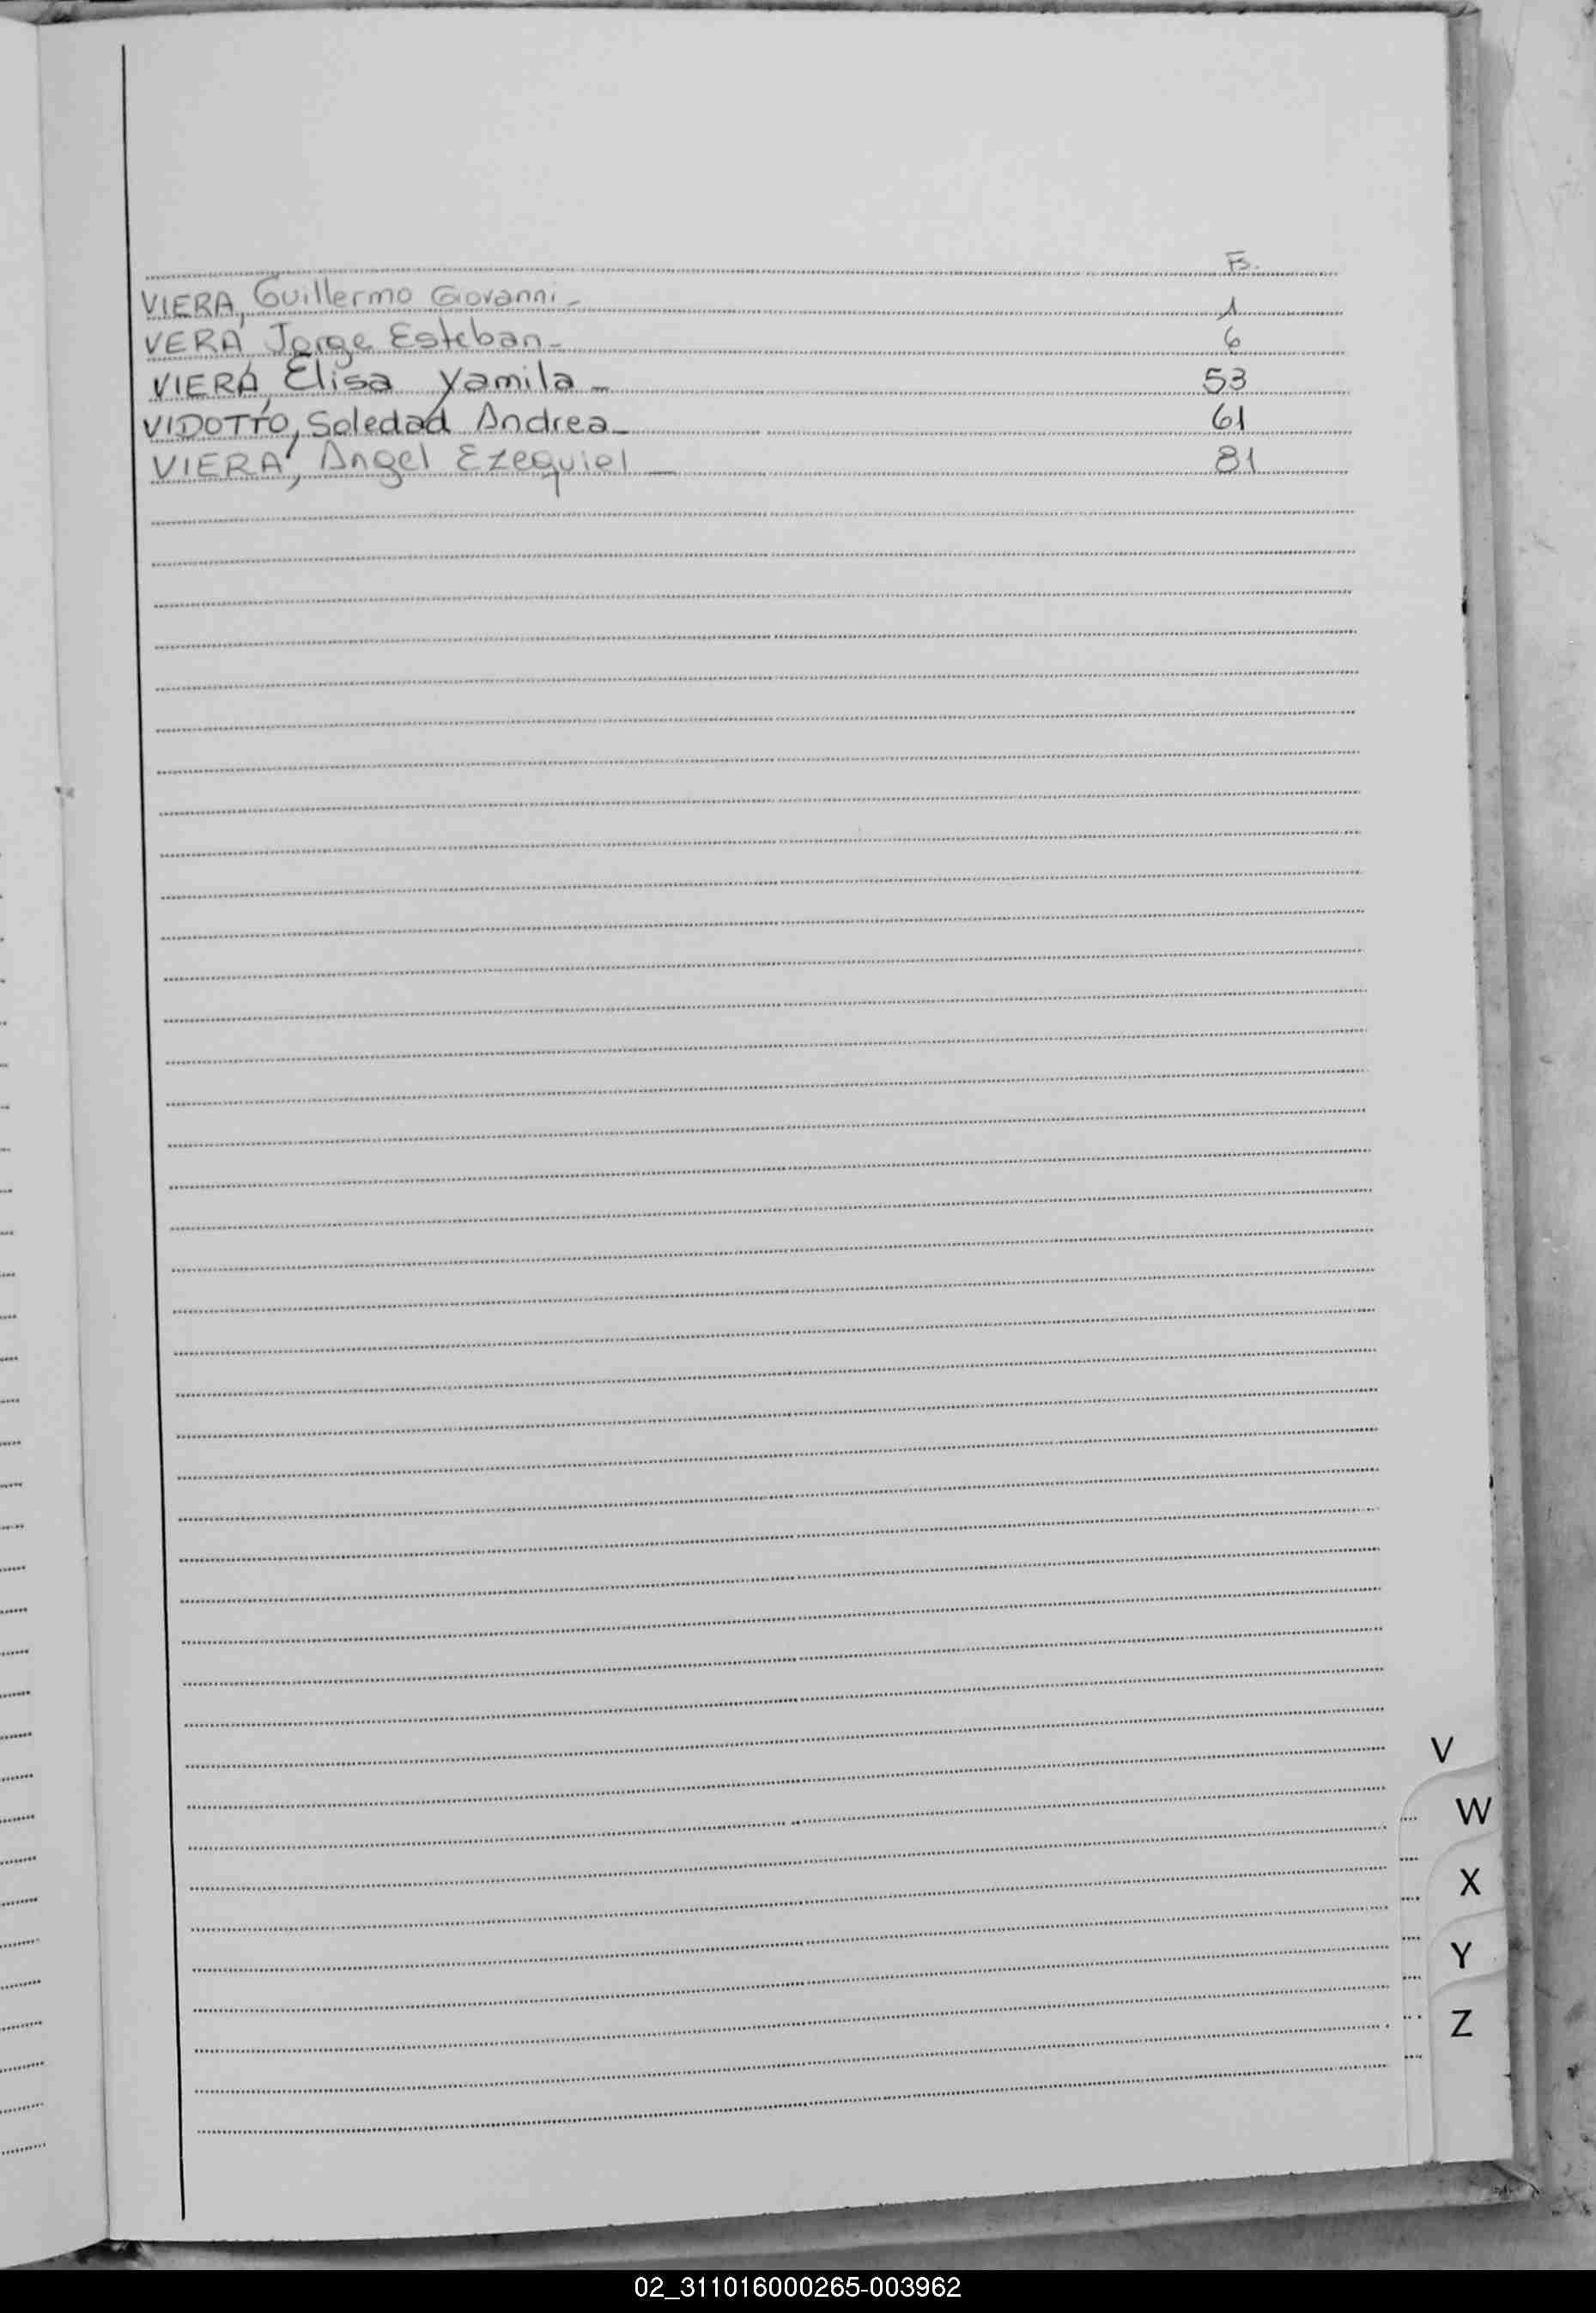 Fs.
VIERA, Guillermo Giovanni - 1
VERA, Jorge Esteban - 6
VIERA, Elisa Yamila - 53
VIDOTTO, Soledad Andrea - 61
VIERA, Angel Ezequiel - 81
V
W
X
Y
Z
02_311016000265-003962